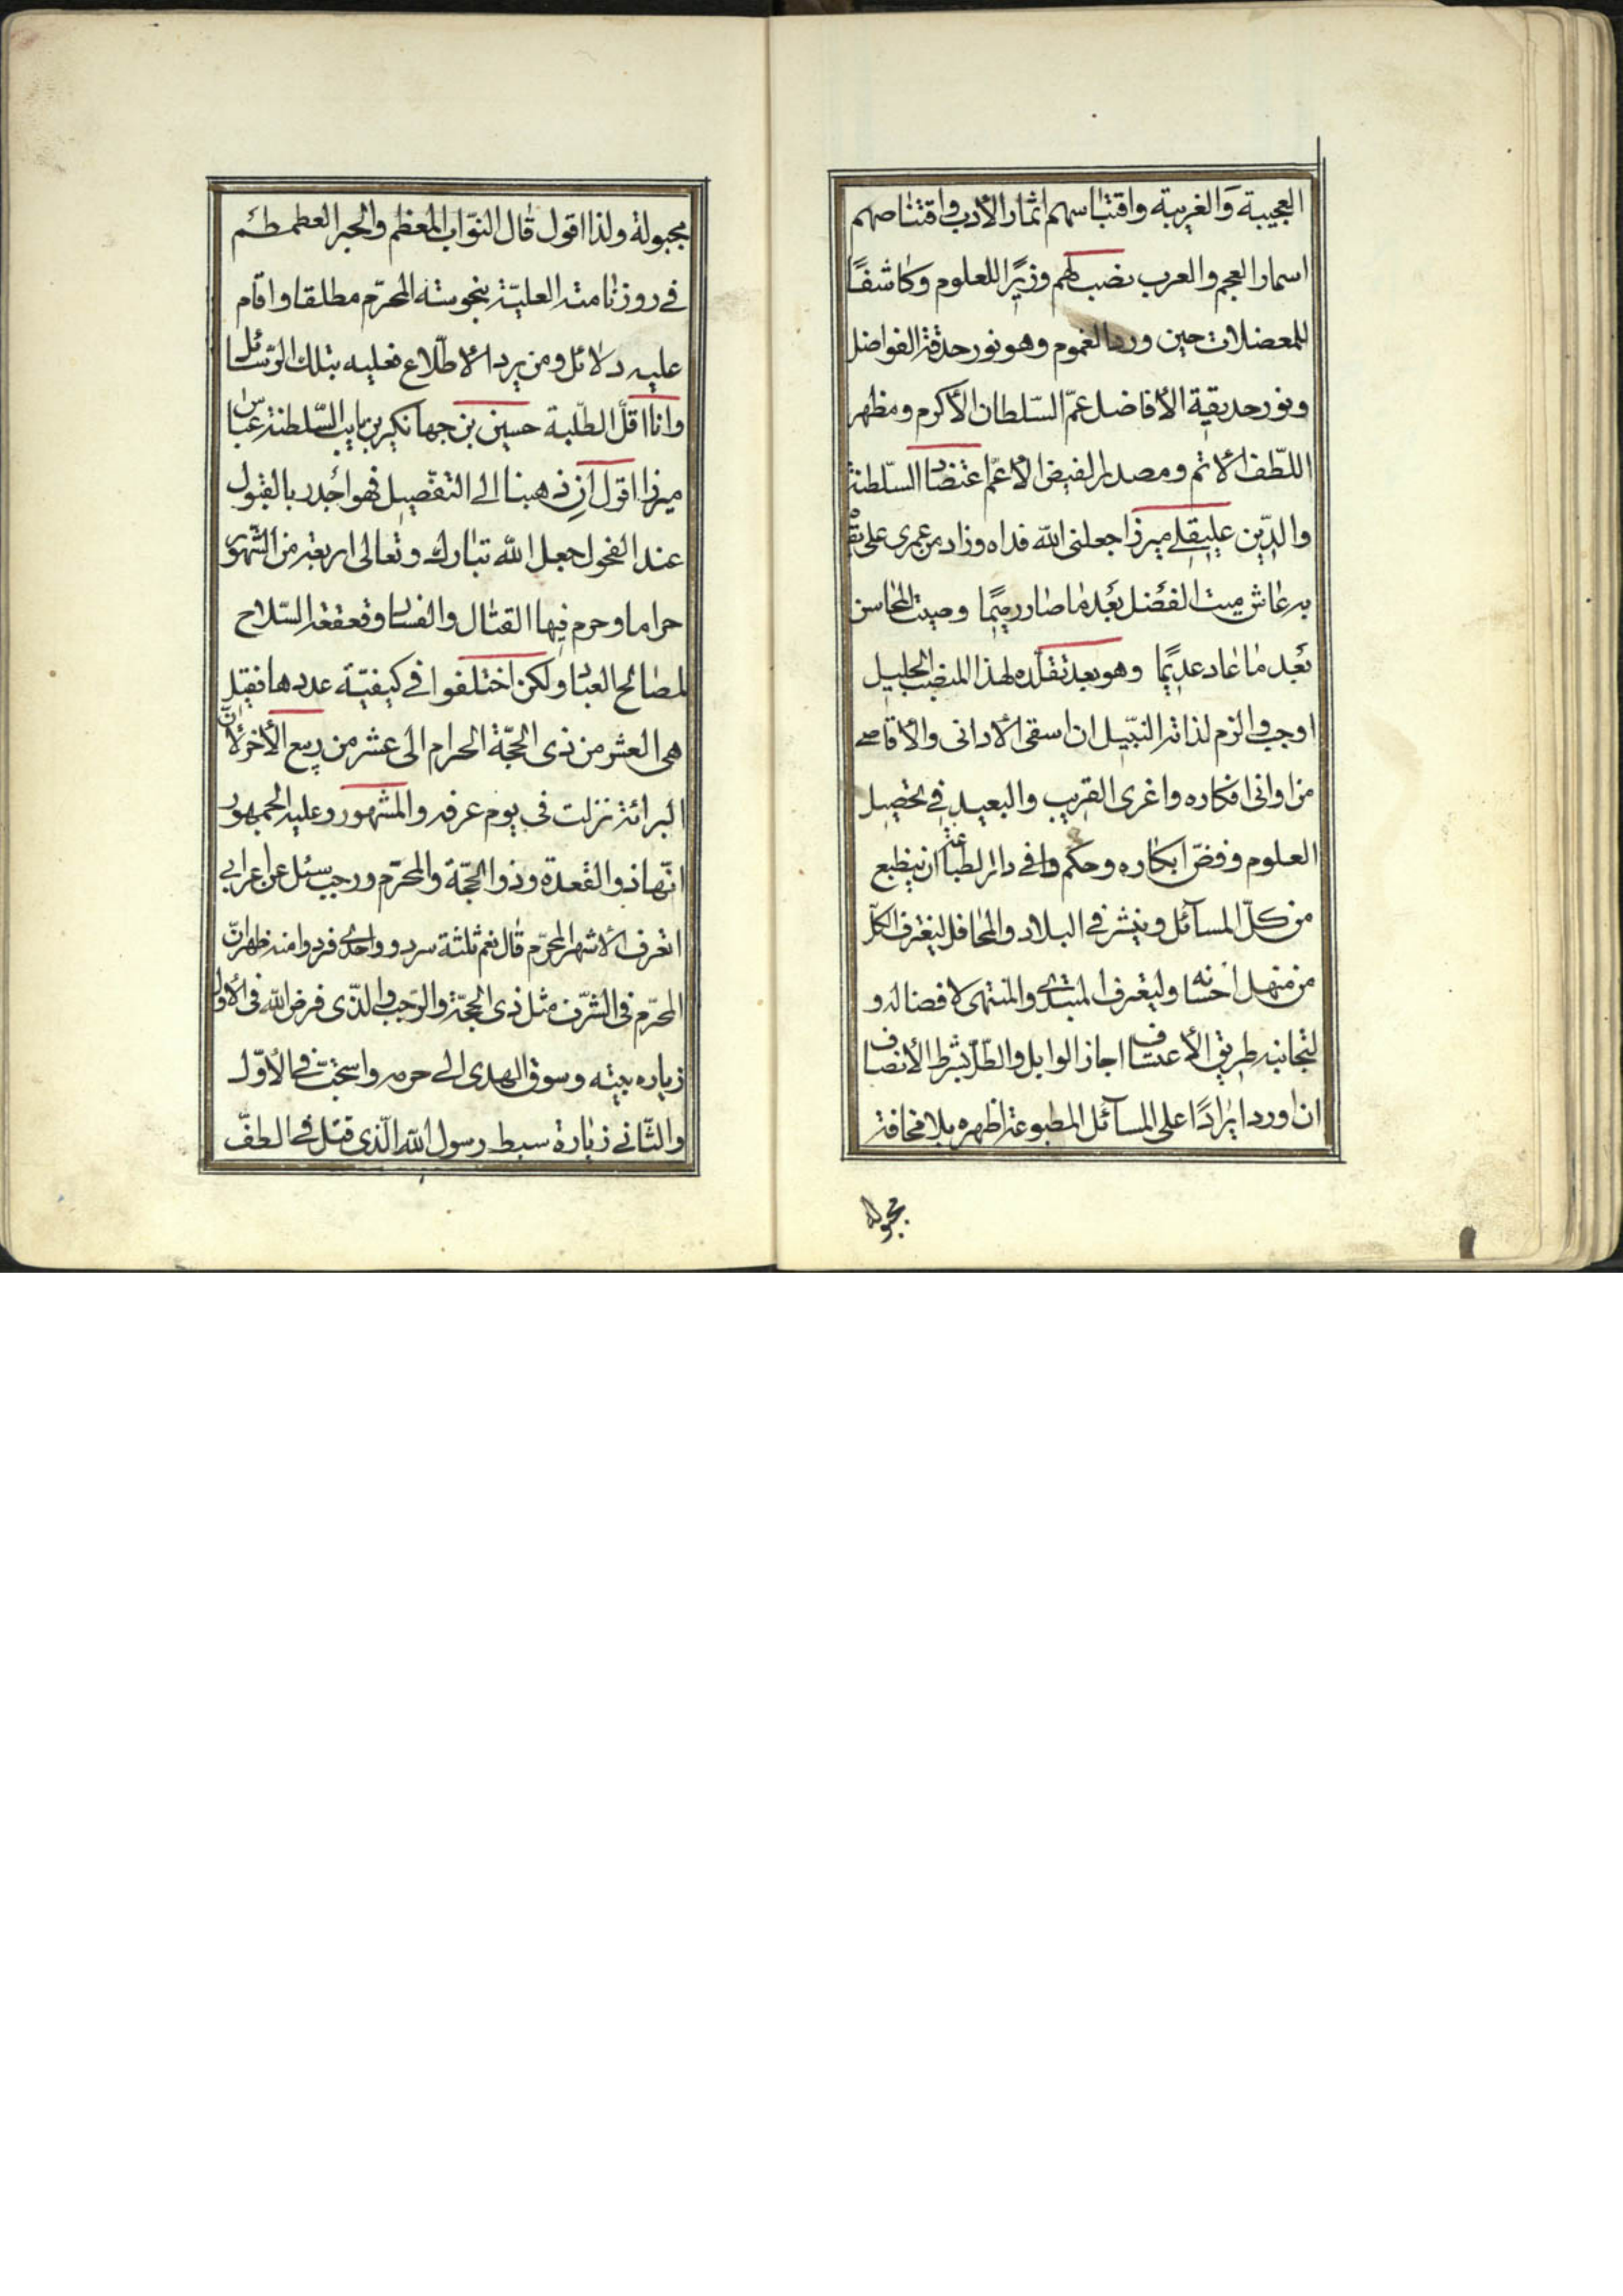 العجيبة وَالغريبة واقتباسهم اثمار الأدب واقتناصهم
اسمار العجم والعرب نصب لهم وزيرًا للعلوم وكاشفًا
للمعضلات حين ورد الغموم وهو نور حدقة الفواضل
ونور حديقة الأفاضل عمّ السّلطان الأكرم ومظهر
اللّطف الاتم ومصدر الفيض الأعمّ اعتضاد السّلطنة
والدّين عليقلي ميرزا جعلنى الله فداه وزاد من عمرى على
به عاش ميت الفضل بعد ما صار رميمًا وصيت المحاسن
بعد ما عاد عديمًا وهو بعد تقلّده لهذا المنصب الجليل
اوجب والزم لذاته النّبيل ان اسقى الادانى والأقاصى
من اوانى افكاره واغرى القريب والبعيد في تحصيل
العلوم وفضّ ابكاره وحكم في دائر لطباعته ان ينطبع
من كلّ المسآئل وينشر في البلاد والمحافل ليغترف الكلّ
من منهل احسانه وليعترف المبتدى والمنتهى لافضاله و
لتجانبه طريق الأعتساف اجاز الوابل والطّل بشرط الأنصاف
ان اورد ايرادًا على المسآئل المطبوعة اظهره بلا مخافة
مجبولة
مجبولة ولذا اقول قال النوّاب المعظّم والحبر العطمطم
في روزنامته العليّة بنحوسته المحرّم مطلقا واقام
عليه دلائل ومن يرد الاطّلاع فعليه بتلك الرّسائل
وانا اقلّ الطّلبة حسين بن جهانكير بن نايب السّلطنة عبّاس
ميرزا اقول ان ذهبنا الى التفصيل فهو اجدر بالقبول
عند الفحول جعل الله تبارك وتعالى اربعة من الشّهور
حراما وحرم فيها القتال والفساد وقعقعة السّلاح
لمصالح العباد ولكن اختلفوا في كيفيّة عددها فقيل
هى العشر من ذى الحجّة الحرام الى عشر من ربيع الأخر لأنّ
البرائة نزلت فى يوم عرفه والمشهور وعليه الجمهور
انّها ذو القعدة وذو الحجّة والمحرّم ورجب سئل عن اعرابي
اتعرف الاشهر المحرّم قال نعم ثلثة سرد وواحد فرد وامنه ظهر انّ
المحرّم فى الشّرف مثل ذى الحجّة والرّجب والّذى فرض الله فى الأول
زياره بيته وسوق الهدى الى حرمه واستحبّ في الأوّل
والثّاني زيارة سبط رسول الله الّذى قتل في الطفّ